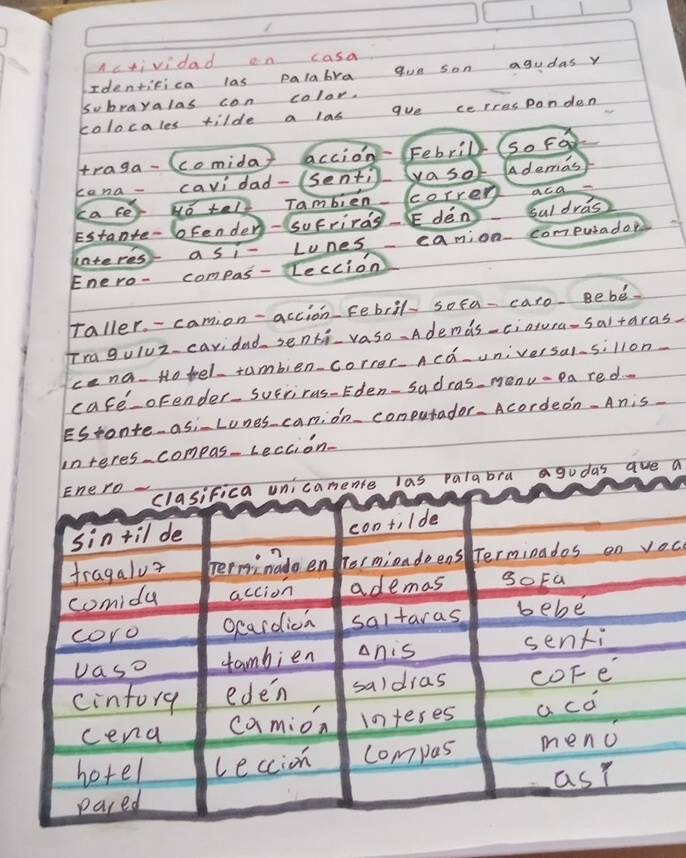 Actividad en casa
Identifica las palabra que son agudas y
subrayalas con color.
colocales tilde a las que correspondan
traga - comida - acción - Febril - Sofá -
cena - cavidad - Senti - vaso - Además -
café - Hótel - Tambien - correr aca -
Estante - ofender - sufrirás - Edén - saldrás
interés - asi - Lunes - camion - computador
Enero - compás - Lección -
Taller. - camion - acción - Febril - sofa - caro - Bebé -
Traguluz - cavidad - sentí - vaso - Además - cintura - saltaras -
cena - Hotel - tambien - correr - Acá - universal - sillon -
café - ofender - sufriras - Eden - sadras - menu - pared -
Estante - asi - Lunes - camión - computador - Acordeón - Anis -
interes - compas - Lección -
Enero - clasifica unicamente las palabra agudas que a
sin tilde con tilde
tragaluz Terminado en n Terminado en s Terminados en voc
comida acción ademas sofa
coro ocardión saltaras bebé
vaso tambien anis senti
cintura edén saldras cofé
cena camión interes acá
hotel lección compas menú
pared así